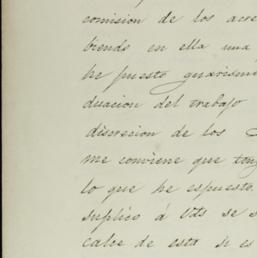 comision de los acre
biendo en ella una
he puesto guarismo
duacion del trabajo
discrecion de los
me conviene que teng
lo que he espuesto.
suplico á Vds se s
calce de esta si es